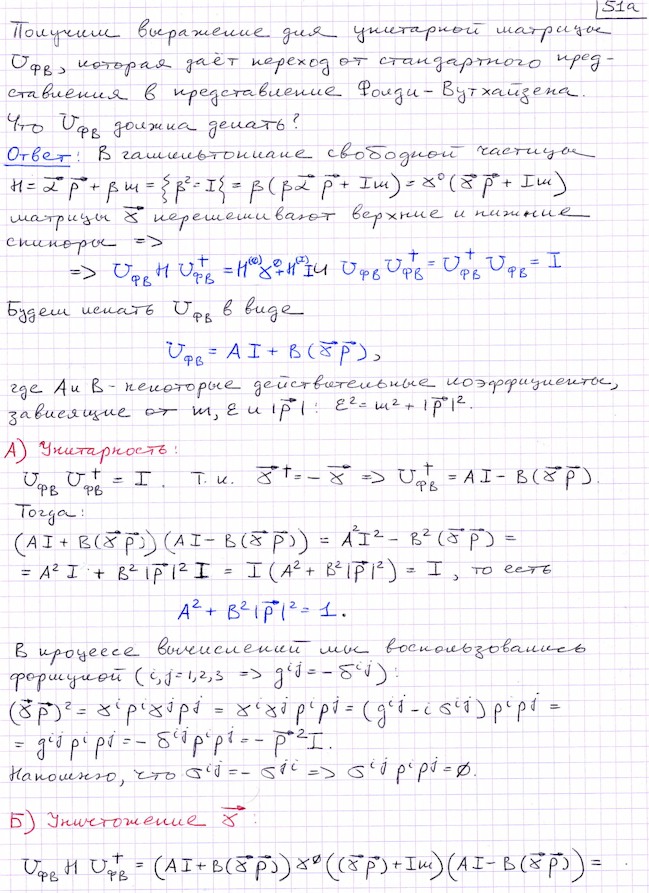 51a
Получим выражение для унитарной матрицы
U_ФВ, которая даёт переход от стандартного пред-
ставления в представление Фолди-Вутхайзена.
Что U_ФВ должна делать?
Ответ: В гамильтониане свободной частицы
H = α⃗ p⃗ + β m = {β² = I} = β(β α⃗ p⃗ + I m) = γ⁰(γ⃗ p⃗ + I m)
матрицы γ⃗ перемешивают верхние и нижние
спиноры =>
=> U_ФВ H U_ФВ⁺ = H⁽⁰⁾γ⁰ + H⁽¹⁾I и U_ФВ U_ФВ⁺ = U_ФВ⁺ U_ФВ = I
Будем искать U_ФВ в виде
U_ФВ = A I + B(γ⃗ p⃗),
где A и B - некоторые действительные коэффициенты,
зависящие от m, ε и |p⃗|: ε² = m² + |p⃗|².
А) Унитарность:
U_ФВ U_ФВ⁺ = I. Т.к. γ⃗⁺ = - γ⃗ => U_ФВ⁺ = A I - B(γ⃗ p⃗).
Тогда:
(A I + B(γ⃗ p⃗))(A I - B(γ⃗ p⃗)) = A² I² - B²(γ⃗ p⃗) =
= A² I + B² |p⃗|² I = I(A² + B² |p⃗|²) = I, то есть
A² + B² |p⃗|² = 1.
В процессе вычислений мы воспользовались
формулой (i, j = 1, 2, 3 => gⁱʲ = - δⁱʲ):
(γ⃗ p⃗)² = γⁱ pⁱ γʲ pʲ = γⁱ γʲ pⁱ pʲ = (gⁱʲ - i σⁱʲ) pⁱ pʲ =
= gⁱʲ pⁱ pʲ = - δⁱʲ pⁱ pʲ = - p⃗² I.
Напомню, что σⁱʲ = - σʲⁱ => σⁱʲ pⁱ pʲ = 0.
Б) Уничтожение γ⃗:
U_ФВ H U_ФВ⁺ = (A I + B(γ⃗ p⃗)) γ⁰ ((γ⃗ p⃗) + I m)(A I - B(γ⃗ p⃗)) =